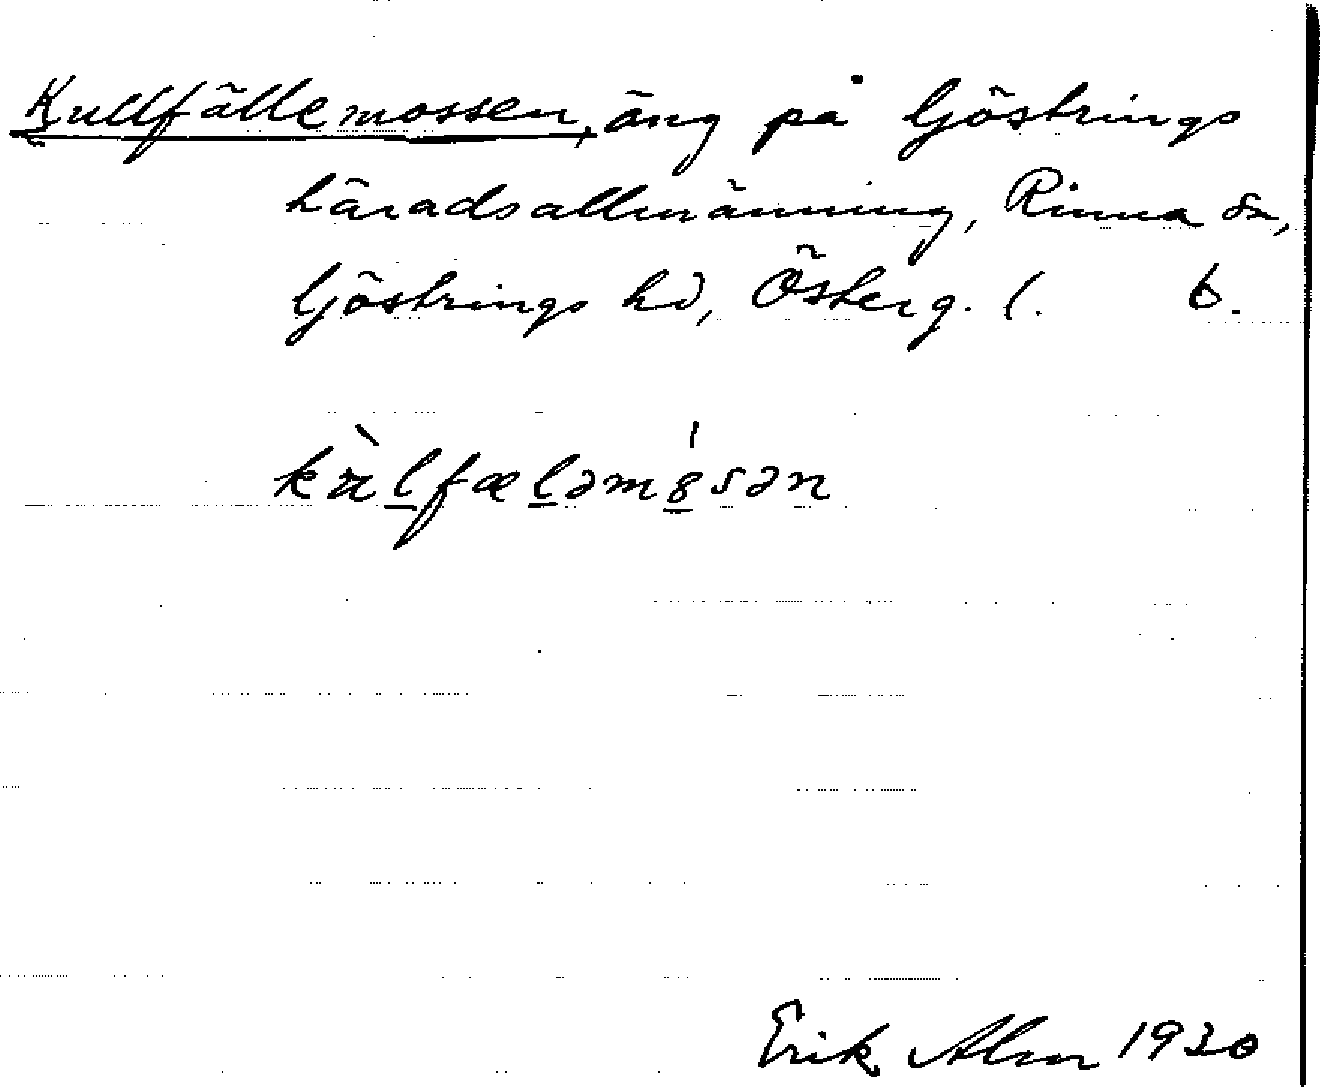 Kullfällemossen, äng på Göstrings
häradsallmänning, Rinna sn,
Göstrings hd, Österg. l. b.
kælfæləm8sən
Erik Alm 1930